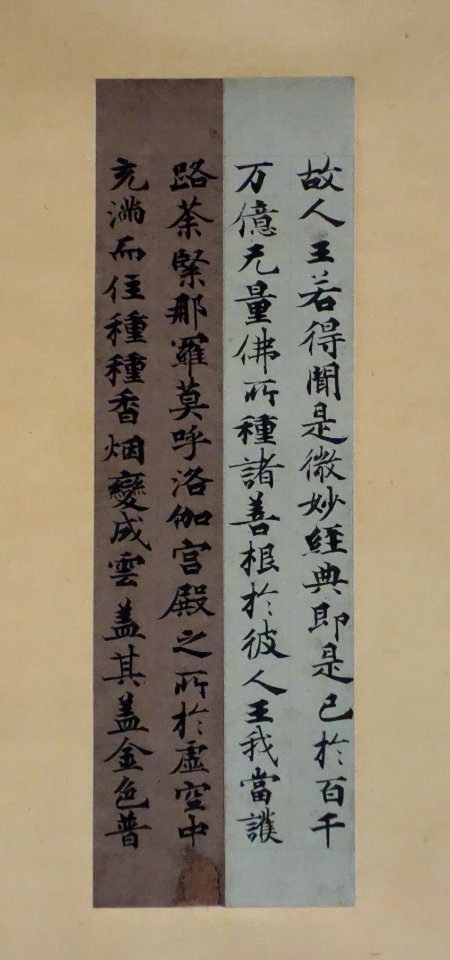 故人王若得聞是微妙經典即是已於百千
万億无量佛所種諸善根於彼人王我當護
路荼緊那羅莫呼洛伽宫殿之所於虛空中
充滿而住種種香烟變成雲盖其盖金色普